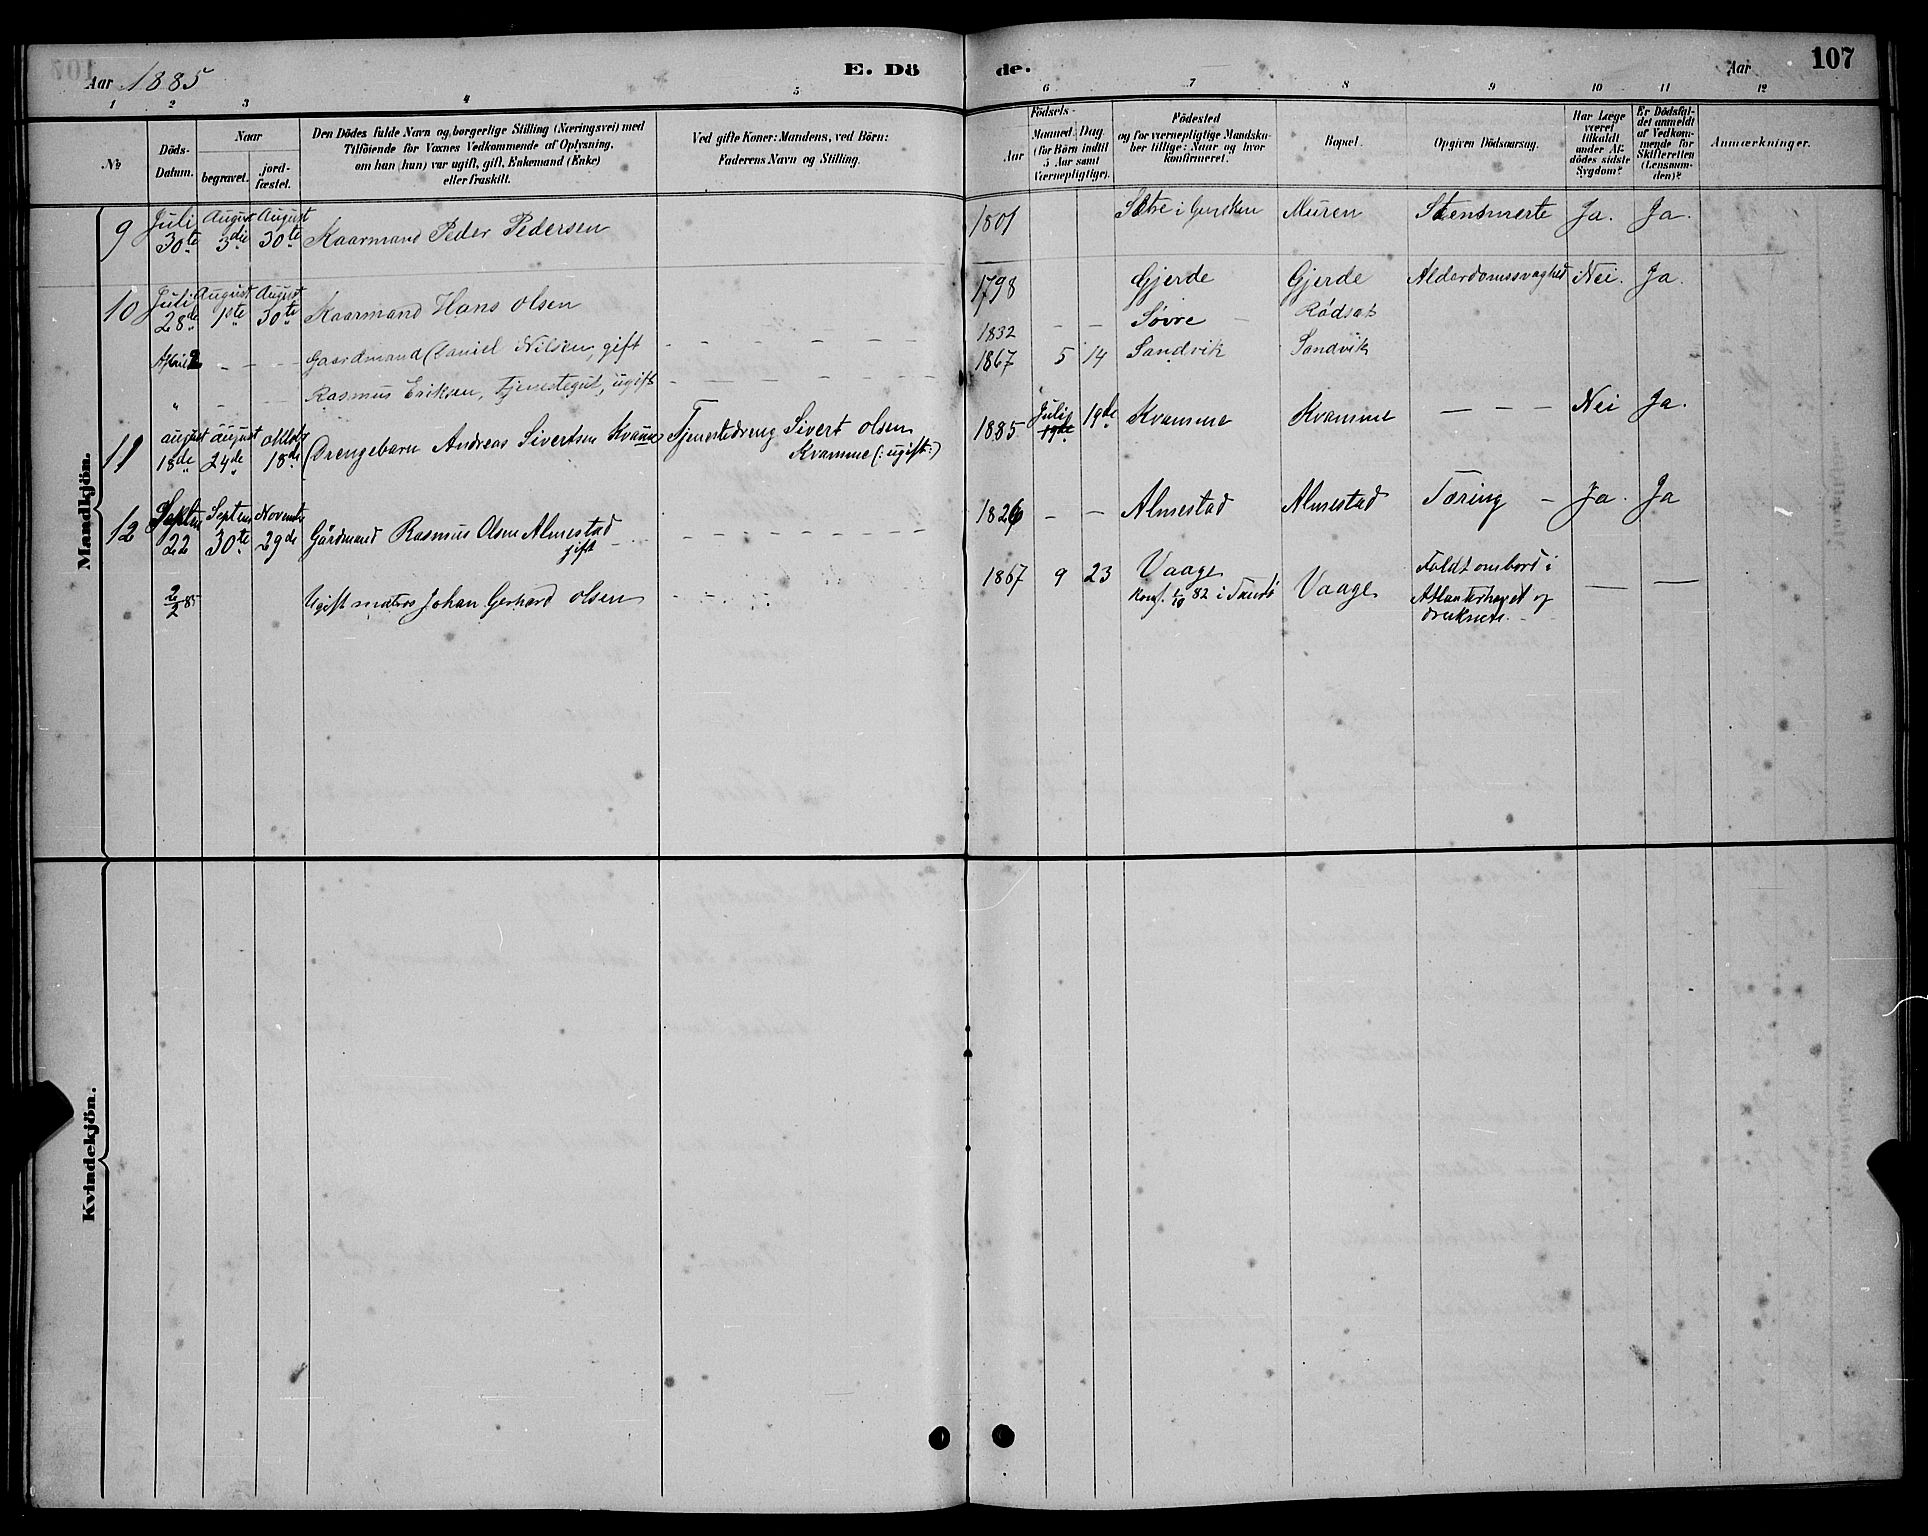 Aar 1885
E. Dö
de.
Aar
107
1 2 3 4 5 6 7 8 9 10 11 12
No
Döds-Datum.
Naar
begravet.
jord-fæstet.
Den Dödes fulde Navn og borgerlige Stilling (Næringsvei) med
Tilföiende for Voxnes Vedkommende af Oplysning,
om han (hun) var ugift, gift, Enkemand (Enke)
eller fraskilt.
Ved gifte Koner: Mandens, ved Börn:
Faderens Navn og Stilling.
Födsels-
Aar
Maaned Dag
(for Börn indtil
5 Aar samt
Værnepligtige).
Födested
og for værnepligtige Mandska-
ber tillige: Naar og hvor
konfirmeret.
Bopæl.
Opgiven Dödsaarsag.
Har Læge
været
tilkaldt
under Af-
dödes sidste
Sygdom?
Er Dödsfal-
det anmeldt
af Vedkom-
mende for
Skifteretten
(Lensman-
den)?
Anmærkninger.
Mandkjön.
9 Juli 30te August 3die August 30te Kaarmand Peder Pedersen 1801 Sætre i Gursken Muren Stensmerte Ja. Ja.
10 Juli 28de August 1ste August 30te Kaarmand Hans Olsen 1798 Gjerde Gjerde Alderdomssvaghed Nei. Ja.
April 2 - - Gaardmand Daniel Nilsen, gift - - - 1832 - - Søvre - Rødsæt
" - - Rasmus Eriksen, Tjenestegut, ugift - - - 1867 5 14 Sandvik Sandvik
11 August 18de August 24de Oktobr 18de Drengebarn Andreas Sivertsen Kvamme Tjenestedreng Sivert Olsen
Kvamme (: ugift :) 1885 Juli 19de 19de Kvamme Kvamme - - - Nei Ja.
12 Septem 22 Septem 30te Novemb 29de Gårdmand Rasmus Olsen Almestad
gift - - - 1826 - - Almestad Almestad Tæring - Ja. Ja
2/2 85 Ugift matros Johan Gerhard Olsen - - - 1867 9 23 Vaage
Konf. 1/10 82 i Sandø Vaage Faldt ombord i
Atlanterhavet og
druknete. - -
Kvindekjön.